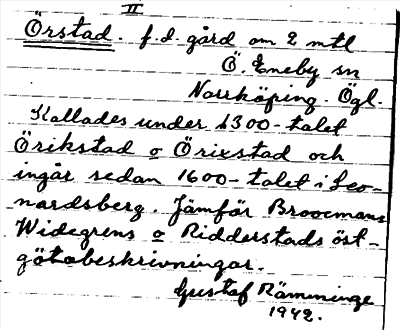 II
Örstad. f.d. gård om 2 mtl
Ö. Eneby sn
Norrköping. Ögl.
Kallades under 1300-talet
Örikstad o Örixstad och
ingår sedan 1600-talet i Leo-
nardsberg. Jämför Broocmans
Widegrens o Ridderstads öst-
götabeskrivningar.
Gustaf Rämminge
1942.